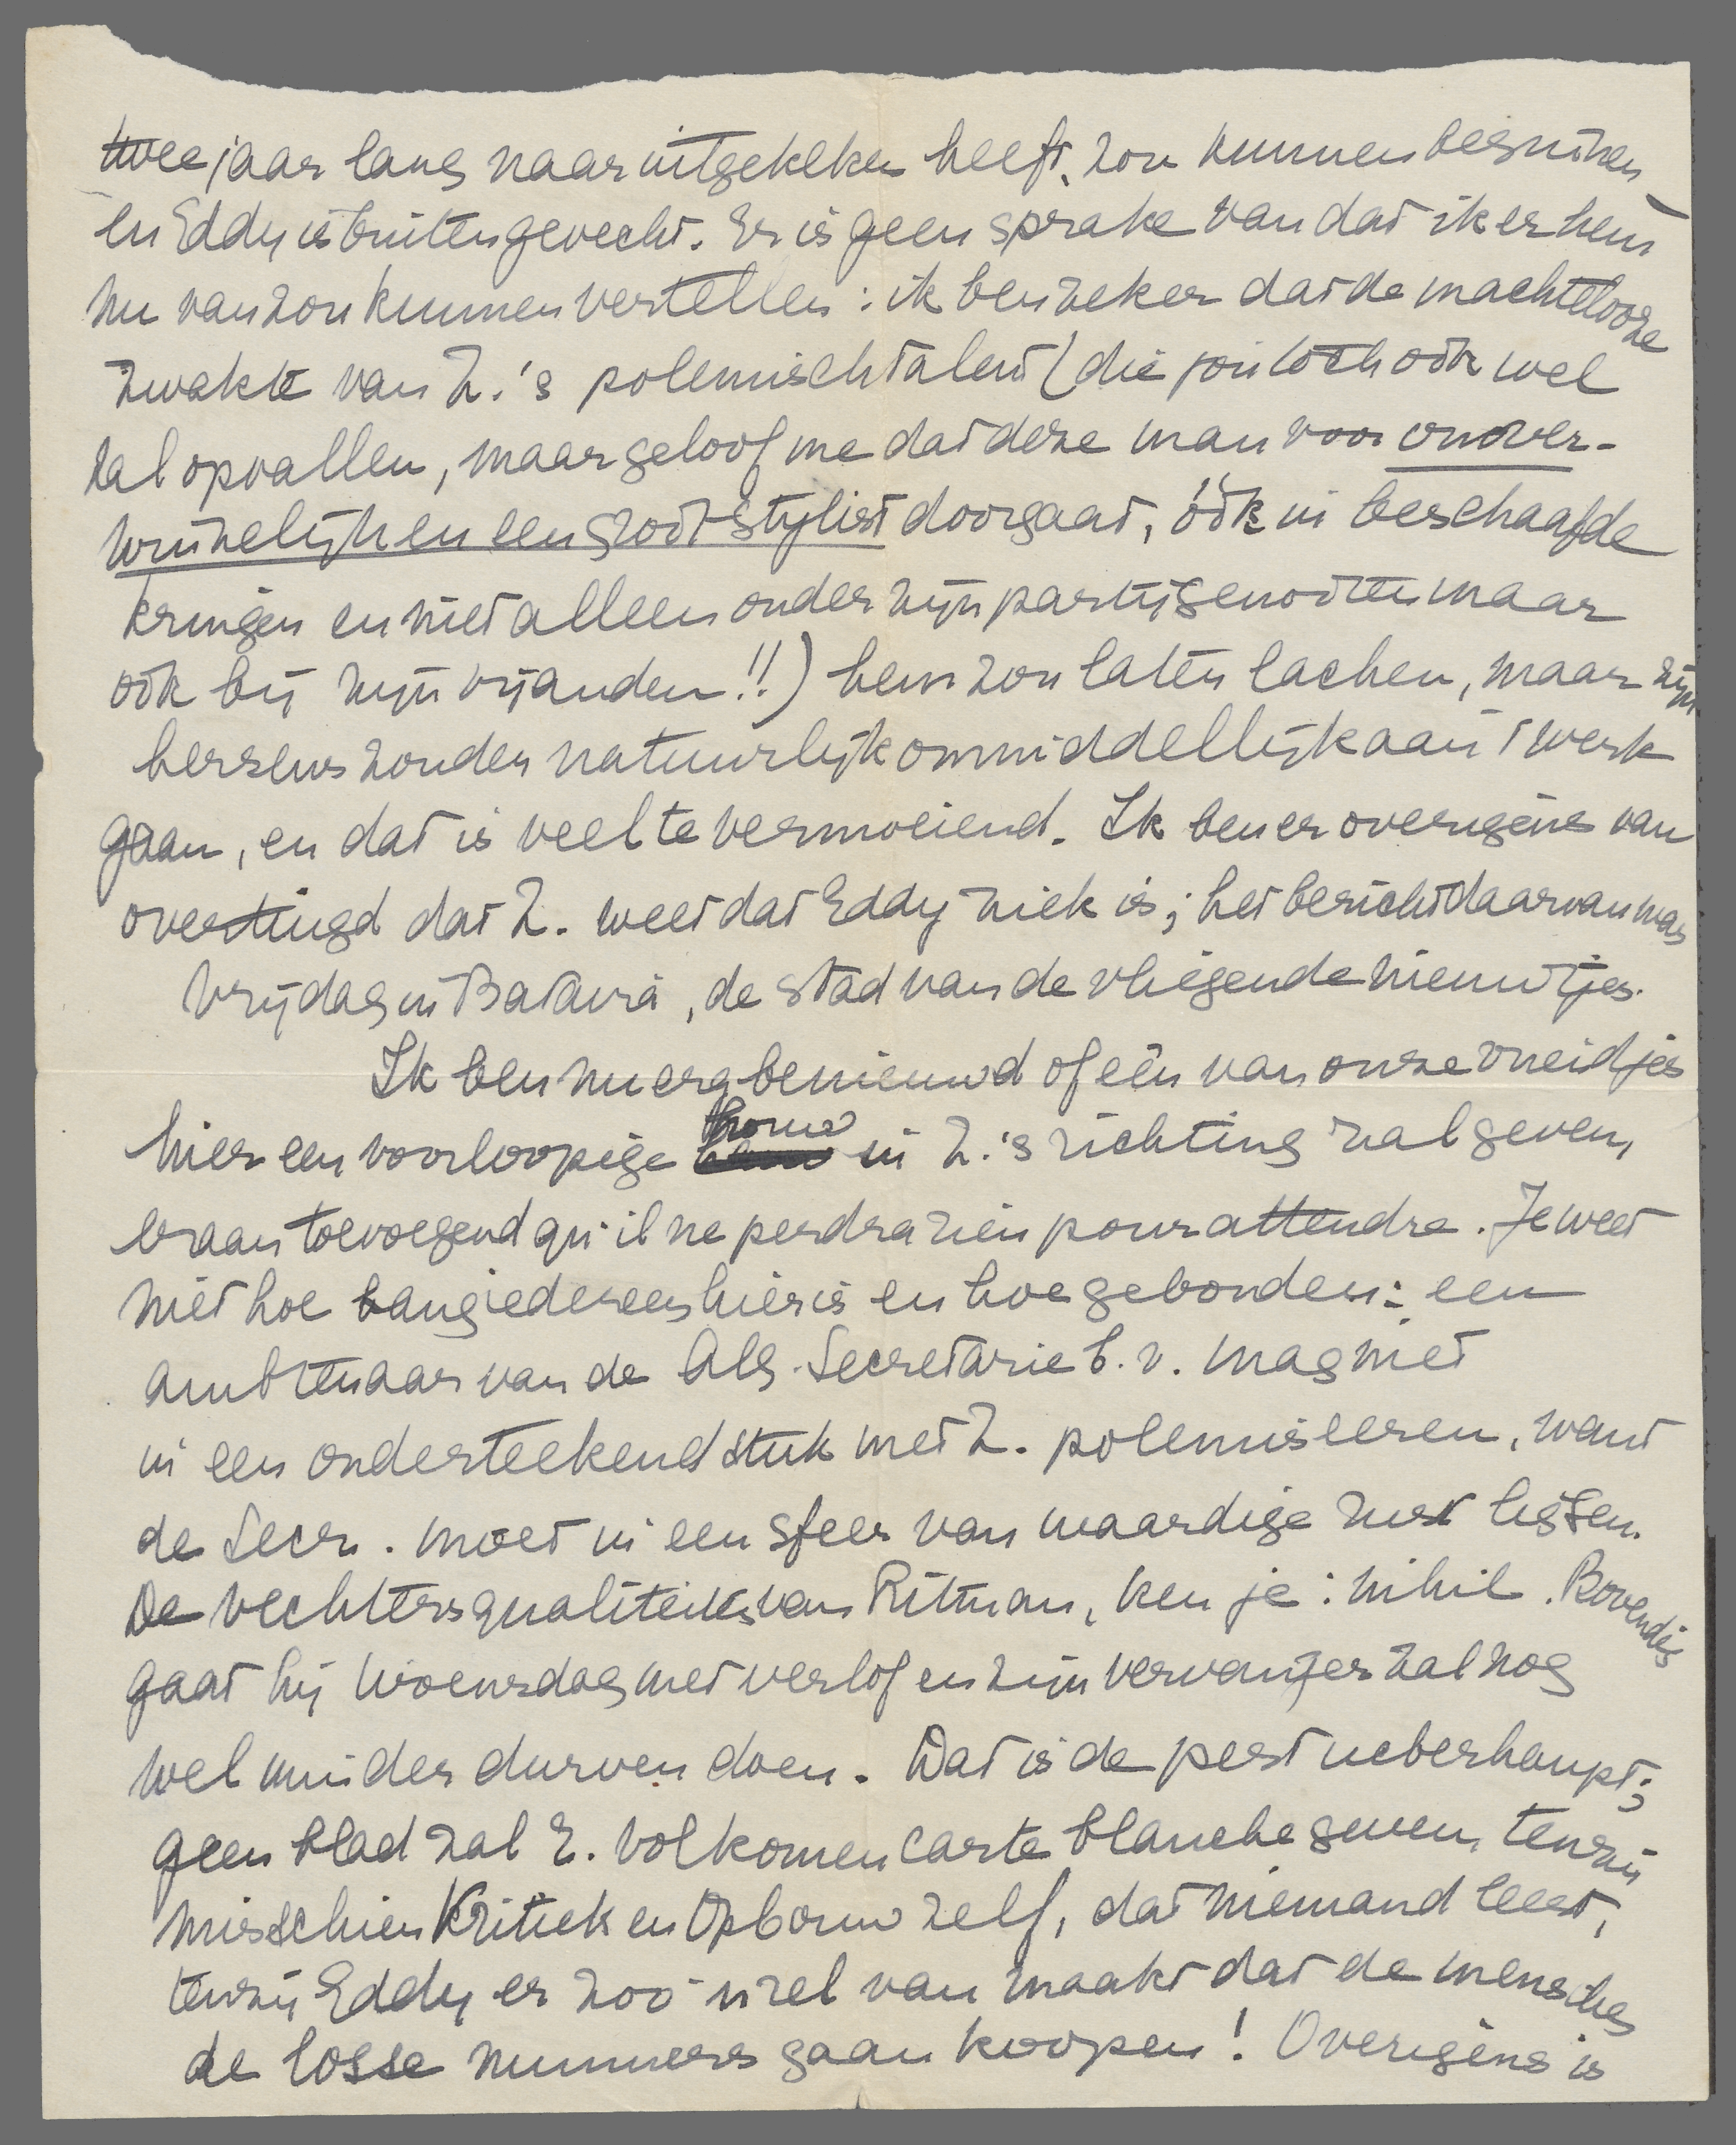 twee jaar lang naar uitgekeken heeft, zou kunnen besnuiven
en Eddy is buiten gevecht. Er is geen sprake van dat ik er hem
nu van zou kunnen vertellen: ik ben zeker dat de machtelooze
zwakte van Z.'s polemisch talent (die jou toch ook wel
zal opvallen, maar geloof me dat deze man voor onover-
winnelijk en een groot stylist doorgaat, óók in beschaafde
kringen en niet alleen onder zijn partijgenooten maar
ook bij zijn vijanden!!) hem zou laten lachen, maar zijn
hersens zouden natuurlijk onmiddellijk aan 't werk
gaan, en dat is veel te vermoeiend. Ik ben er overigens van
overtuigd dat Z. weet dat Eddy ziek is; het bericht daarvan was
Vrijdag in Batavia, de stad van de vliegende nieuwtjes.
Ik ben nu erg benieuwd of één van onze vriendjes
hier een voorloopige houw in Z.'s richting zal geven,
eraan toevoegend qu'il ne perdra rien pour attendre. Je weet
niet hoe bang iedereen hier is en hoe gebonden: een
ambtenaar van de Alg. Secretarie b.v. mag niet
in een onderteekend stuk met Z. polemiseeren, want
de Secr. moet in een sfeer van waardige rust liggen.
De vechtersqualiteiten van Ritman, ken je: nihil. Bovendien
gaat hij Woensdag met verlof en zijn vervanger zal nog
wel minder durven doen. Dat is de pest ueberhaupt;
geen blad zal E. volkomen carte blanche geven, tenzij
misschien Kritiek en Opbouw zelf, dat niemand leest,
tenzij Eddy er zoo'n rel van maakt dat de menschen
de losse nummers gaan koopen! Overigens is